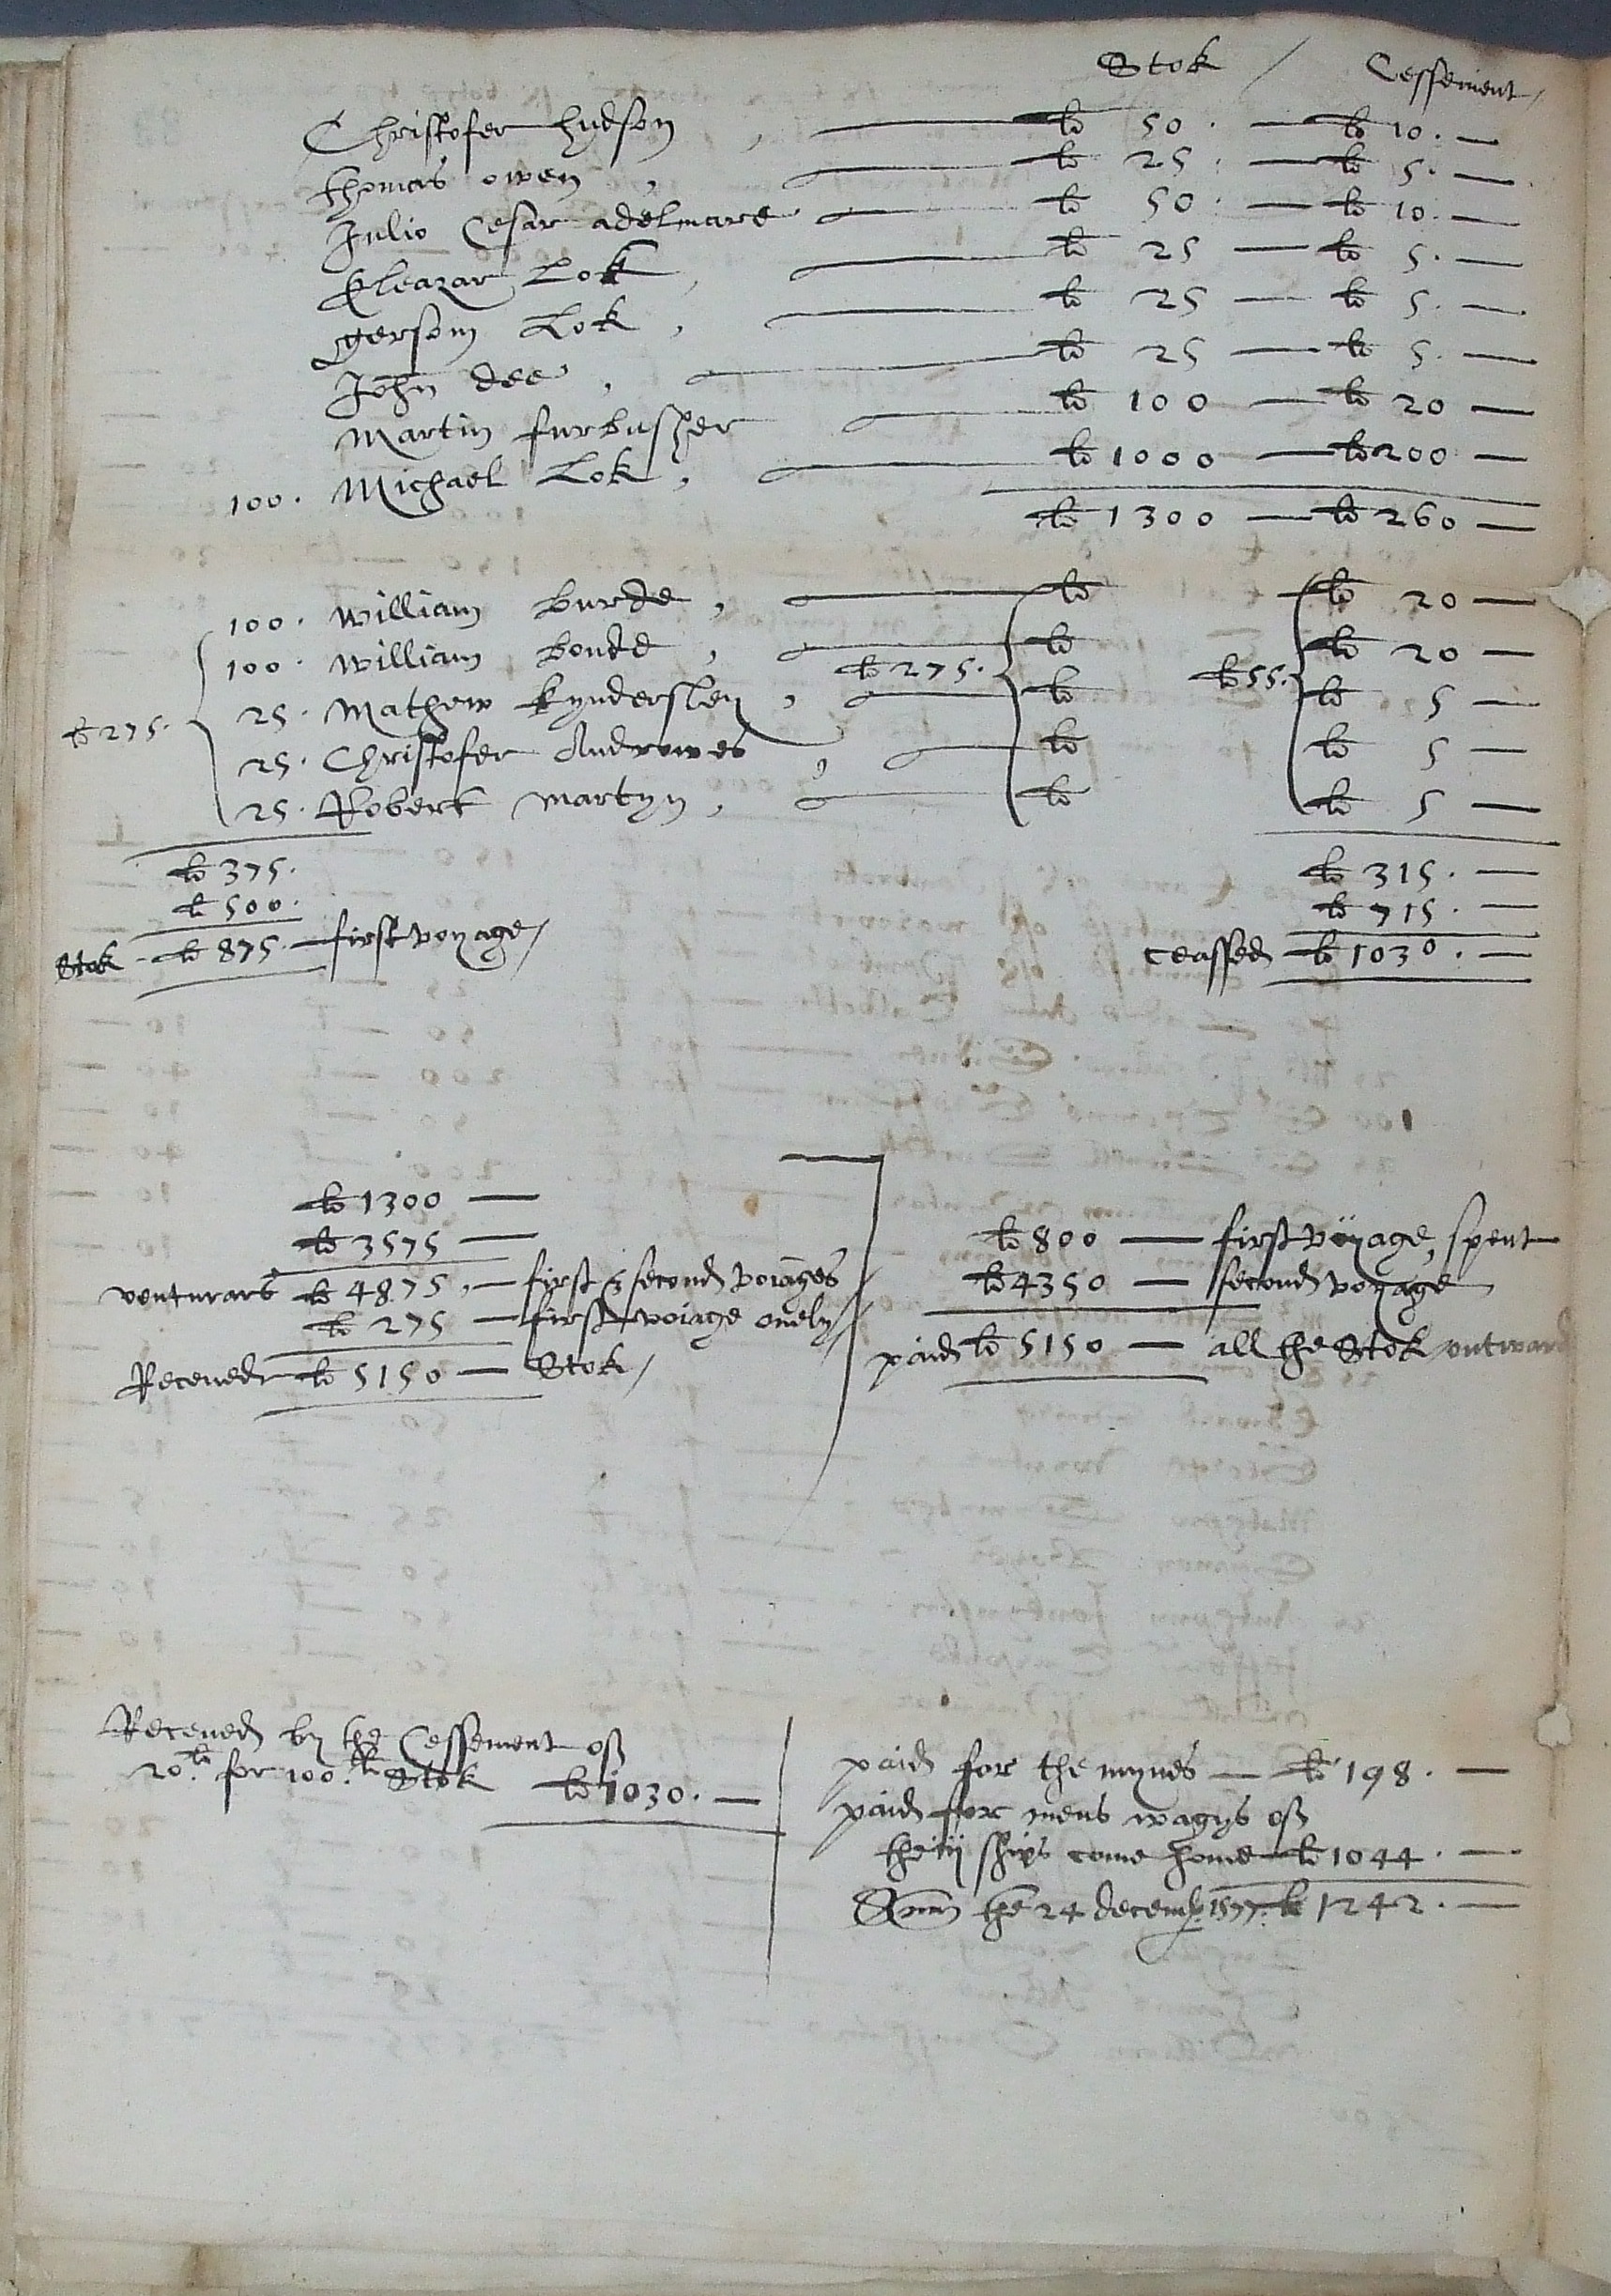 Stok / Cessement /
Christofer hudson , — li 50 . — li 10 . —
thomas owen , — li 25 . — li 5 . —
Julio Cesar adelmare — li 50 . — li 10 . —
Eleazar Lok , — li 25 — li 5 . —
gersom Lok , — li 25 — li 5 . —
John dee , — li 25 — li 5 . —
Martin furbusher — li 100 — li 20 —
100 . Michael Lok , — li 1000 — li 200 —
li 1300 — li 260 —
100 . william burde , — li — li 20 —
100 . william bonde , — li 275 . li li 55 . li 20 —
li 275 . 25 . Mathew kyndersley , — li li 5 —
25 . Christofer Androwes , — li li 5 —
25 . Robert martyn , — li li 5 —
li 375 . li 315 . —
li 500 . li 715 . —
Stok - li 875 — first voyage / ceassed li 1030 . —
li 1300 —
li 3575 —
venturars li 4875 , — first & second voiages /
li 275 — first voiage onely /
Receued li 5150 — Stok /
li 800 — first voyage , spent
li 4350 — second voyage
paid li 5150 — all the Stok outward
Receued by the Cessement of
20 li for 100 li Stok li 1030 . —
paid for the mynes — li 198 . —
paid for mens wages of
the iij ships come home li 1044 . —
Som the 24 decemb. 1577 . li 1242 . —